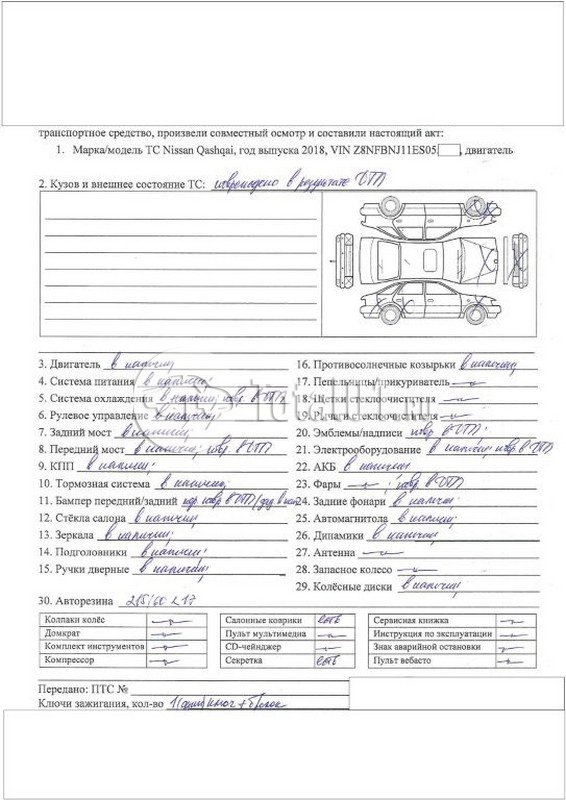 транспортное средство, произвели совместный осмотр и составили настоящий акт:
1. Марка/модель ТС Nissan Qashqai, год выпуска 2018, VIN Z8NFBNJ11ES05 , двигатель
2. Кузов и внешнее состояние ТС: повреждено в результате ДТП
3. Двигатель в наличии
4. Система питания в наличии
5. Система охлаждения в наличии, повр. в ДТП
6. Рулевое управление в наличии
7. Задний мост в наличии
8. Передний мост в наличии, повр. в ДТП
9. КПП в наличии
10. Тормозная система в наличии
11. Бампер передний/задний пер повр в ДТП/зад. в нал
12. Стёкла салона в наличии
13. Зеркала в наличии
14. Подголовники в наличии
15. Ручки дверные в наличии
16. Противосолнечные козырьки в наличии
17. Пепельницы/прикуриватель —
18. Щетки стеклоочистителя —
19. Рычаги стеклоочистителя —
20. Эмблемы/надписи повр в ДТП
21. Электрооборудование в наличии, повр в ДТП
22. АКБ в наличии
23. Фары повр. в ДТП
24. Задние фонари в наличии
25. Автомагнитола в наличии
26. Динамики в наличии
27. Антенна —
28. Запасное колесо —
29. Колёсные диски в наличии
30. Авторезина 215/60 R17
Колпаки колёс —
Домкрат —
Комплект инструментов —
Компрессор —
Салонные коврики есть
Пульт мультимедиа —
CD-чейнджер —
Секретка есть
Сервисная книжка —
Инструкция по эксплуатации —
Знак аварийной остановки —
Пульт вебасто —
Передано: ПТС №
Ключи зажигания, кол-во 1(один) ключ + брелок